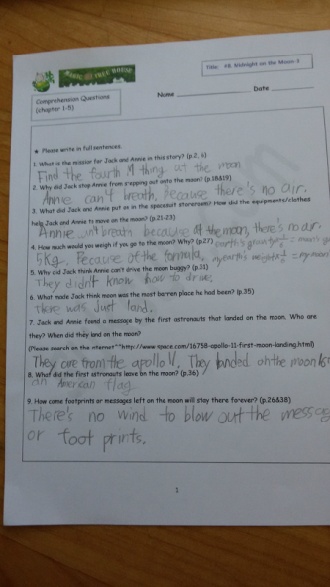 MAGIC TREE HOUSE
Title: #8. Midnight on the Moon-1
Comprehension Questions
(chapter 1-5)
Name
Date
★ Please write in full sentences.
1. What is the mission for Jack and Annie in this story? (p.2, 6)
Find the fourth M thing at the moon
2. Why did Jack stop Annie from stepping out onto the moon? (p.18&19)
Annie can't breath, because there's no air.
3. What did Jack and Annie put on in the spacesuit storeroom? How did the equipments/clothes
help Jack and Annie to move on the moon? (p.21-23)
Annie can't breath because at the moon, there's no air.
4. How much would you weigh if you go to the moon? Why? (p.27)
5kg. Because of the formula.
5. Why did Jack think Annie can't drive the moon buggy? (p.31)
They didn't know how to drive
6. What made Jack think moon was the most barren place he had been? (p.35)
There was just land.
7. Jack and Annie found a message by the first astronauts that landed on the moon. Who are
they? When did they land on the moon?
(Please search on the internet~^^http://www.space.com/16758-apollo-11-first-moon-landing.html)
They are from the apollo 11. They landed on the moon
8. What did the first astronauts leave on the moon? (p.36)
an American flag
9. How come footprints or messages left on the moon will stay there forever? (p.26&38)
There's no wind to blow out the message
or foot prints.
1